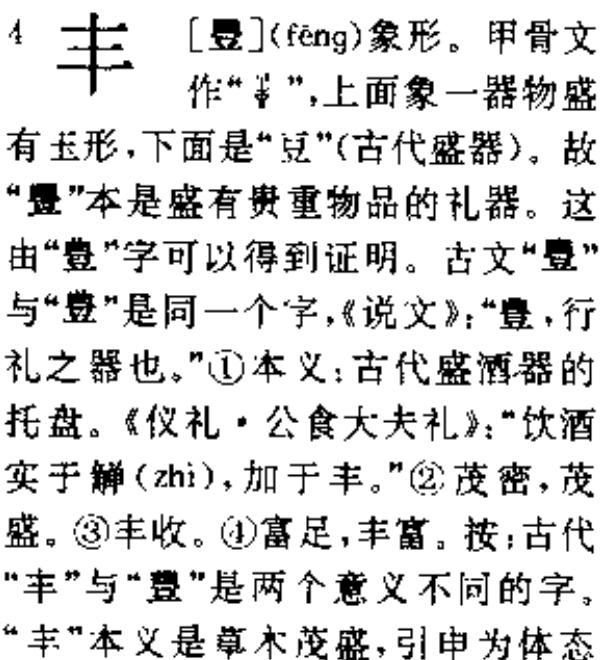 4 丰 [豐](fēng)象形。甲骨文
作“ ”,上面象一器物盛
有玉形,下面是“豆”(古代盛器)。故
“豐”本是盛有贵重物品的礼器。这
由“豊”字可以得到证明。古文“豐”
与“豊”是同一个字,《说文》:“豊,行
礼之器也。”①本义:古代盛酒器的
托盘。《仪礼·公食大夫礼》:“饮酒
实于觯(zhì),加于丰。”②茂密,茂
盛。③丰收。④富足,丰富。按:古代
“丰”与“豐”是两个意义不同的字。
“丰”本义是草木茂盛,引申为体态